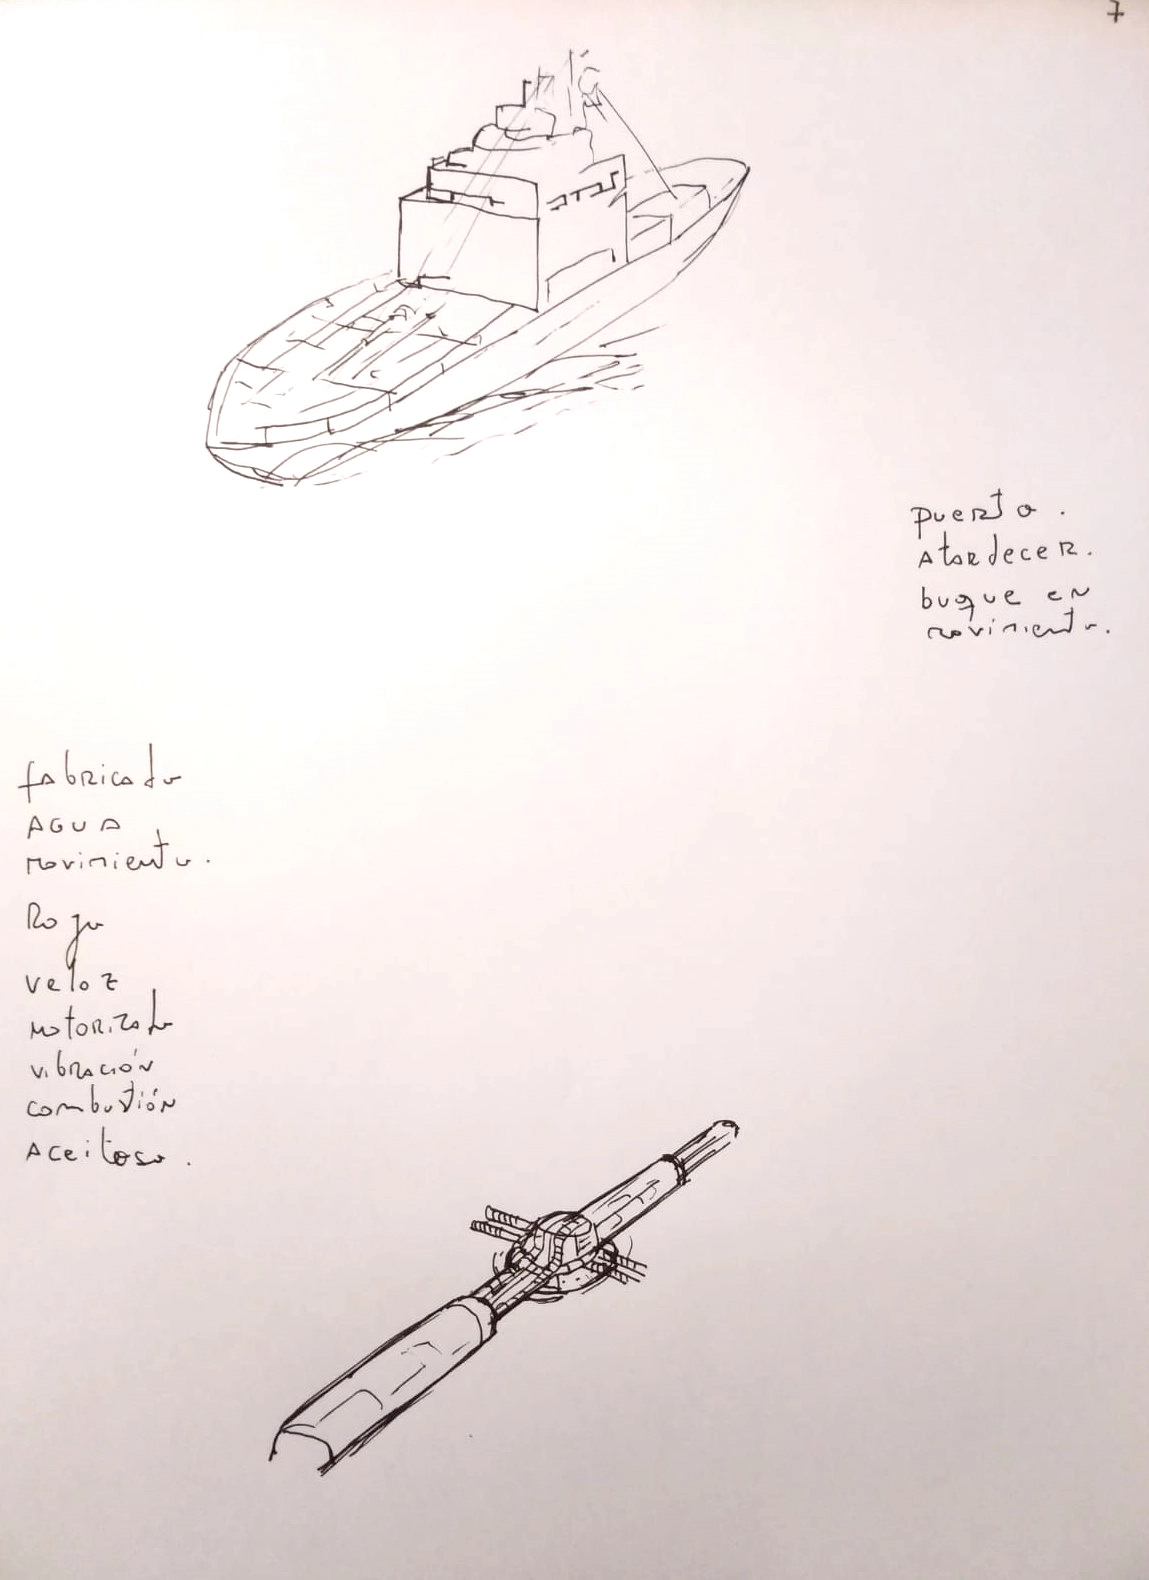 7
puerto.
Atardecer.
buque en
movimiento.
fabricado
AGUA
movimiento.
Rojo
veloz
motorizado
vibración
combustión
Aceitoso.